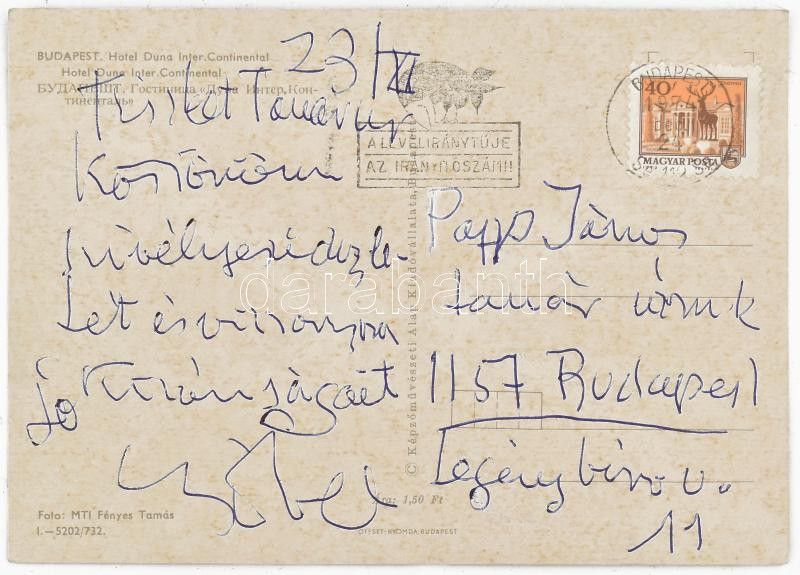 BUDAPEST. Hotel Duna Inter.Continental
Hotel Duna Inter.Continental
БУДАПЕШТ. Гостиница «Дуна Интер.Кон-
тиненталь»
23/XI
Tisztelt Tanár úr
Köszönöm
szívélyes üdvözle-
tét és viszonzom
jó kívánságait
A LEVÉL IRÁNYTŰJE
AZ IRÁNYÍTÓSZÁM!!
BUDAPEST
40f
MAGYAR POSTA
Papp János
tanár úrnak
1157 Budapest
Legénybíró u.
11
© Képzőművészeti Alap Kiadóvállalata, Budapest
Ára: 1,50 Ft
Foto: MTI Fényes Tamás
I.—5202/732.
OFFSET-NYOMDA, BUDAPEST
darabanth